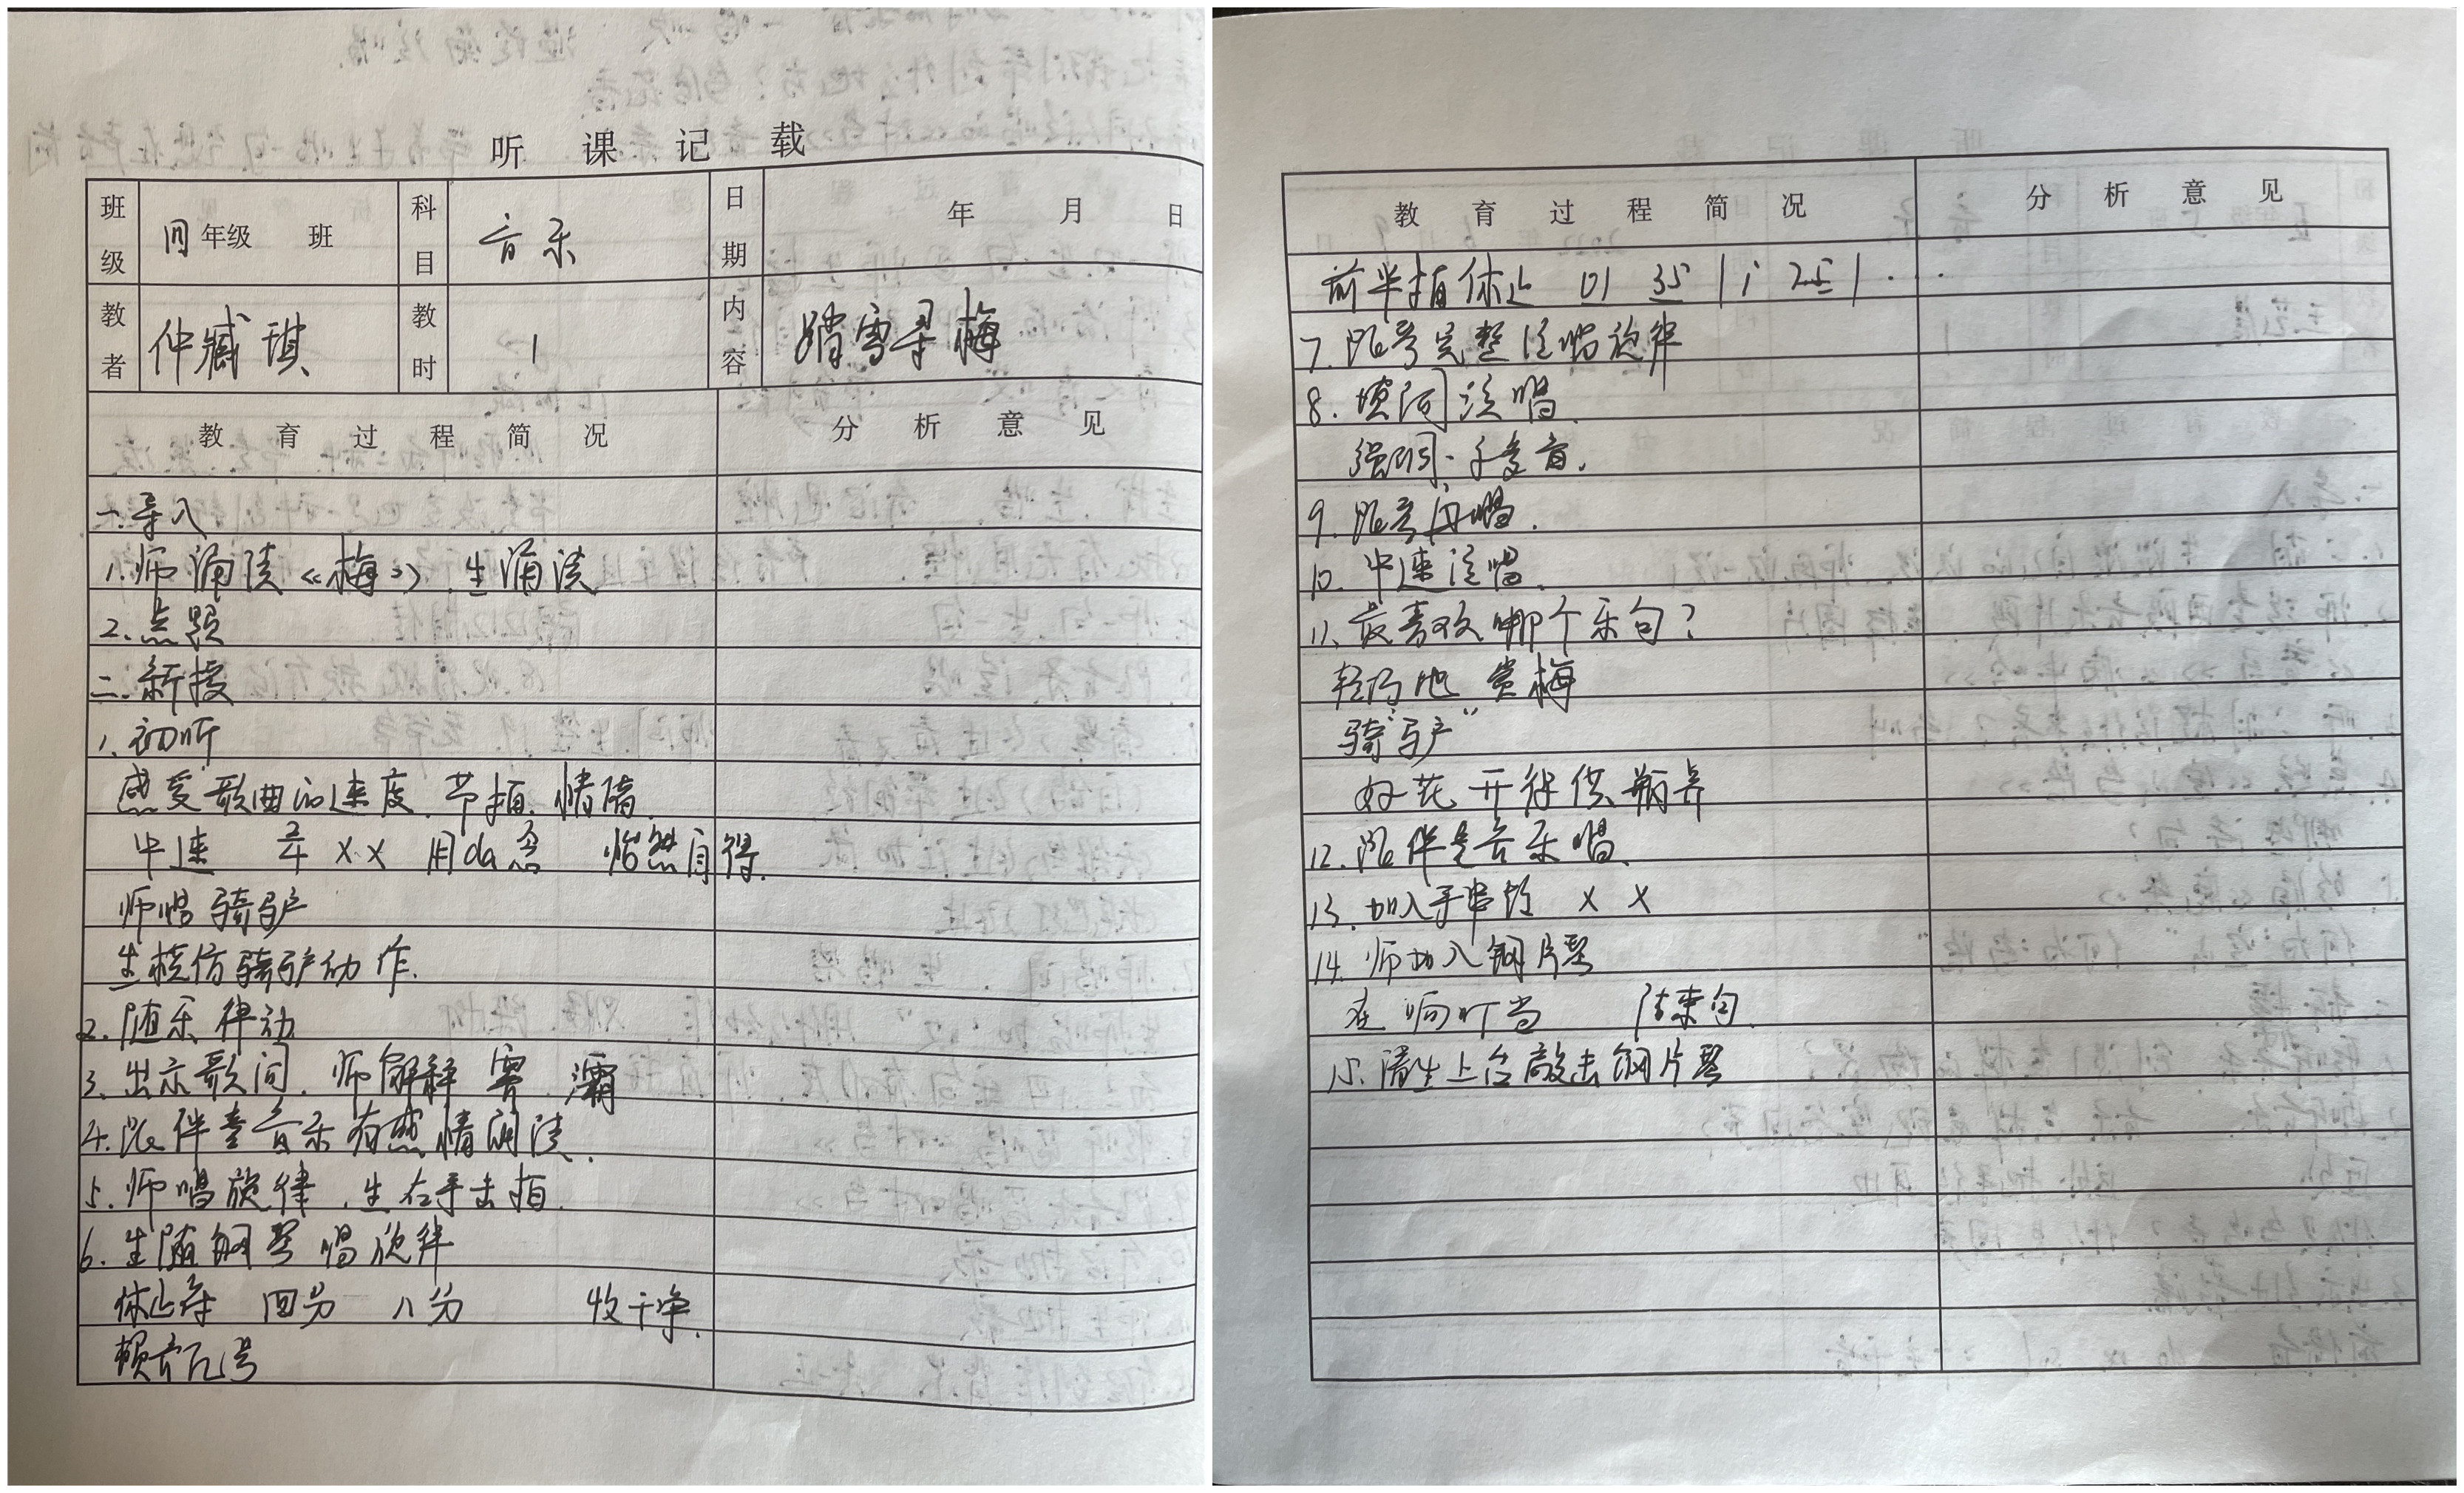 听 课 记 载
班级 年级 班 科目 音乐 日期 年 月 日
教者 仲臧琪 教时 1 内容 踏雪寻梅
教 育 过 程 简 况 分 析 意 见
一.导入
1.师诵读《梅》.生诵读
2.点题
二.新授
1.初听
感受歌曲的速度.节拍.情绪.
中速 2/4 X X 用da念 怡然自得.
师唱骑驴
生模仿骑驴动作.
2.随乐律动
3.出示歌词.师解释 霁 灞
4.跟伴奏音乐有感情朗读.
5.师唱旋律.生右手击拍.
6.生随钢琴唱旋律
休止符 四分 八分 收干净.
教 育 过 程 简 况 分 析 意 见
前半拍休止 01 35 | i 25 | ...
7.跟琴完整演唱旋律
8.填词演唱.
强调.多音.
9.跟琴再唱.
10.中速演唱.
11.最喜欢哪个乐句?
轻巧地 赏梅
骑"驴"
好花开得供瓶养
12.跟伴奏音乐唱.
13.加入手串铃 X X
14.师加入钢片琴
在 响叮当 结束句.
15.请生上台敲击钢片琴